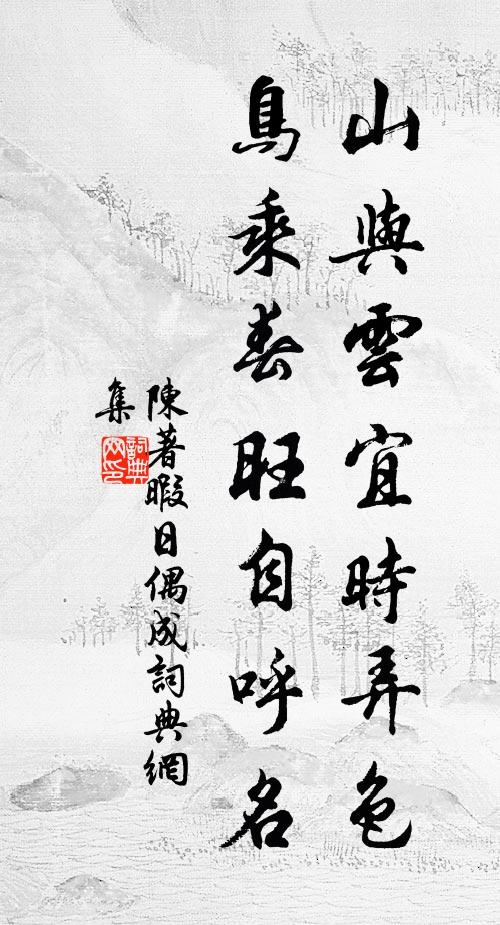 山與雲宜時弄色
鳥乘春旺自呼名
陳著暇日偶成詞典網
集
詞典网印